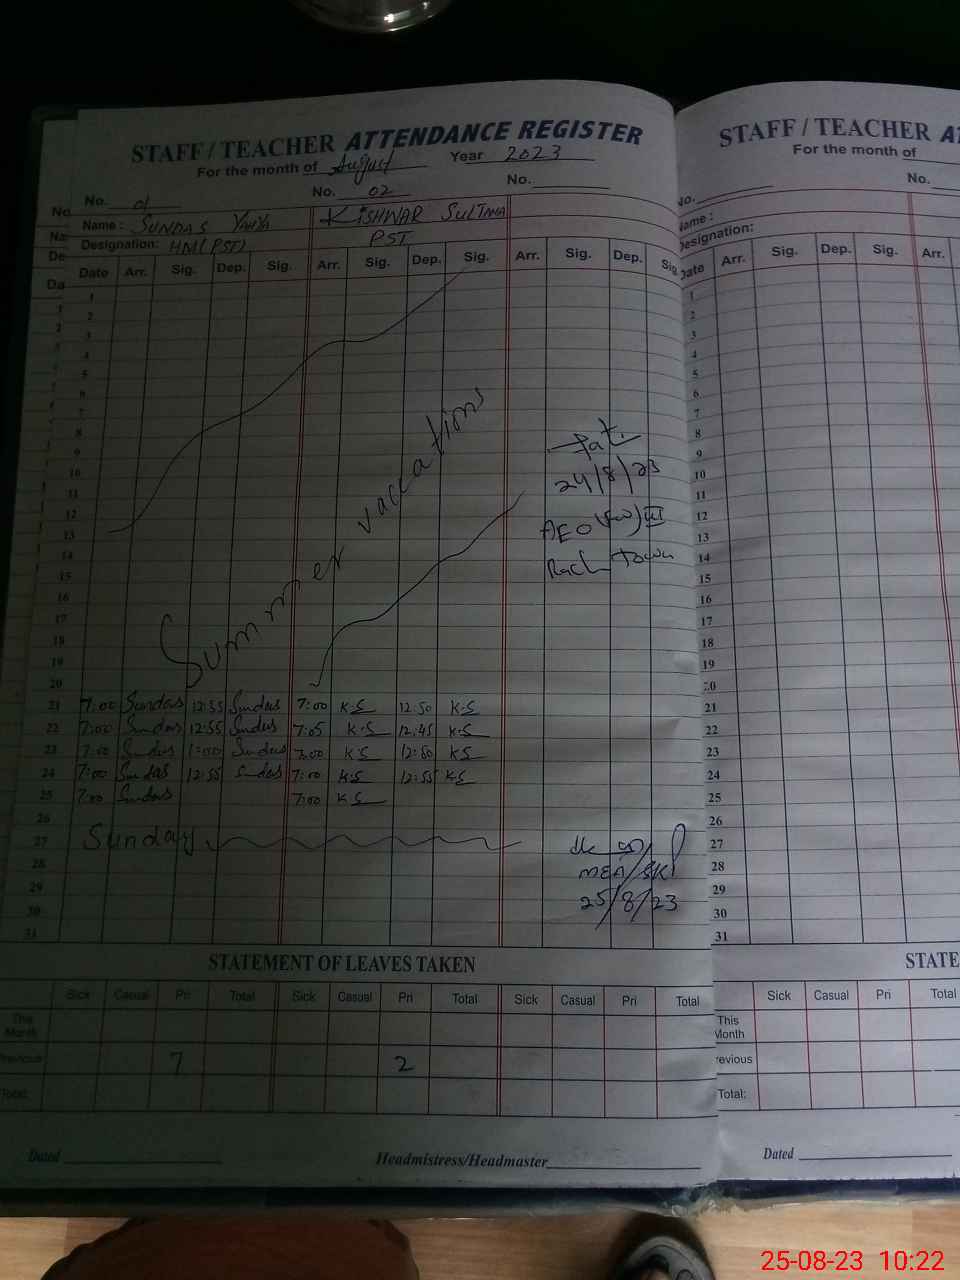 STAFF / TEACHER ATTENDANCE REGISTER
For the month of August Year 2023
No. 01 No. 02 No.
Name : SUNDAS YAHYA KISHWAR SULTNA
Designation: HM(PST) PST
Date Arr. Sig. Dep. Sig. Arr. Sig. Dep. Sig. Arr. Sig. Dep. Sig.
1
2
3
4
5
6
7
8
9
10
11
12
13
14
15
16
17
18
19
20
Summer vaccations
24/8/23
AEO
Town
21 7:00 Sundas 12:55 Sundas 7:00 K.S 12:50 K.S
22 7:00 Sundas 12:55 Sundas 7:05 K.S 12:45 K.S
23 7:00 Sundas 1:00 Sundas 7:00 K.S 12:50 K.S
24 7:00 Sundas 12:55 Sundas 7:00 K.S 12:55 K.S
25 7:00 Sundas 7:00 K.S
26
27 Sunday
28
29
30
31
MEA/SKP
25/8/23
STATEMENT OF LEAVES TAKEN
Sick Casual Pri Total Sick Casual Pri Total Sick Casual Pri Total
This Month
Previous 7 2
Total:
Dated
Headmistress/Headmaster
STAFF / TEACHER AT
For the month of
No. No.
Name :
Designation:
Date Arr. Sig. Dep. Sig. Arr.
1
2
3
4
5
6
7
8
9
10
11
12
13
14
15
16
17
18
19
20
21
22
23
24
25
26
27
28
29
30
31
STATE
Sick Casual Pri Total
This Month
revious
Total:
Dated
25-08-23 10:22